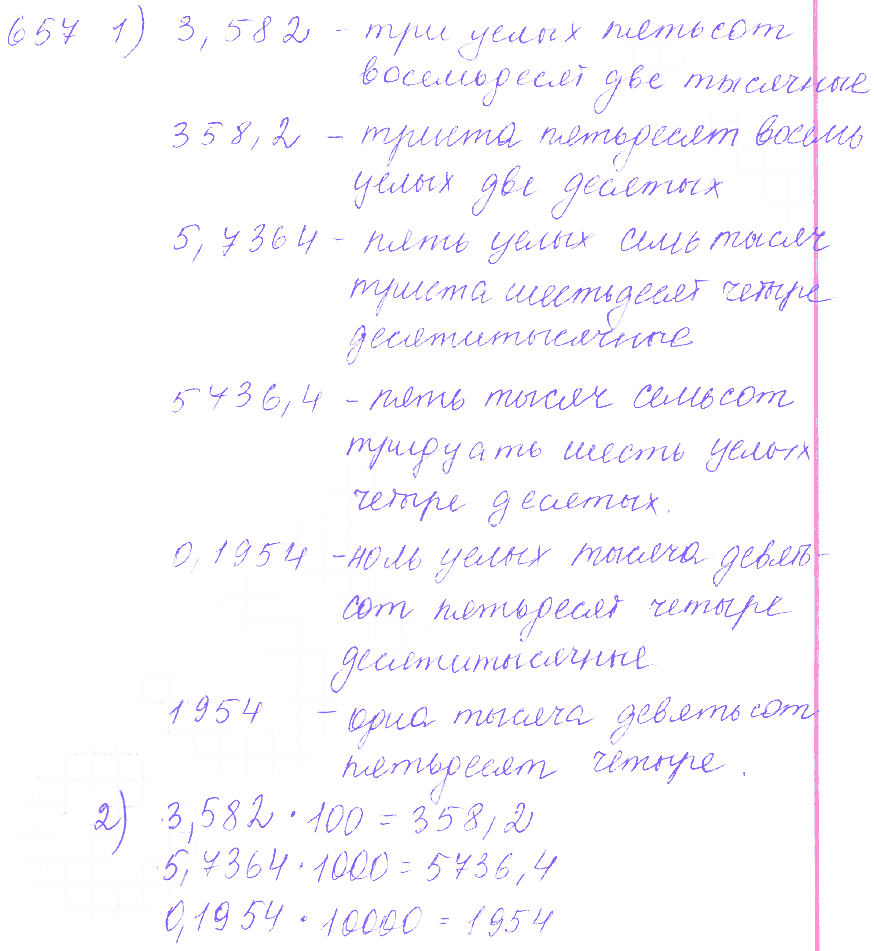 657 1) 3,582 - три целых пятьсот
восемьдесят две тысячные
358,2 - триста пятьдесят восемь
целых две десятых
5,7364 - пять целых семь тысяч
триста шестьдесят четыре
десятитысячные
5736,4 - пять тысяч семьсот
тридцать шесть целых
четыре десятых.
0,1954 - ноль целых тысяча девять-
сот пятьдесят четыре
десятитысячные
1954 - одна тысяча девятьсот
пятьдесят четыре.
2) 3,582 · 100 = 358,2
5,7364 · 1000 = 5736,4
0,1954 · 10000 = 1954